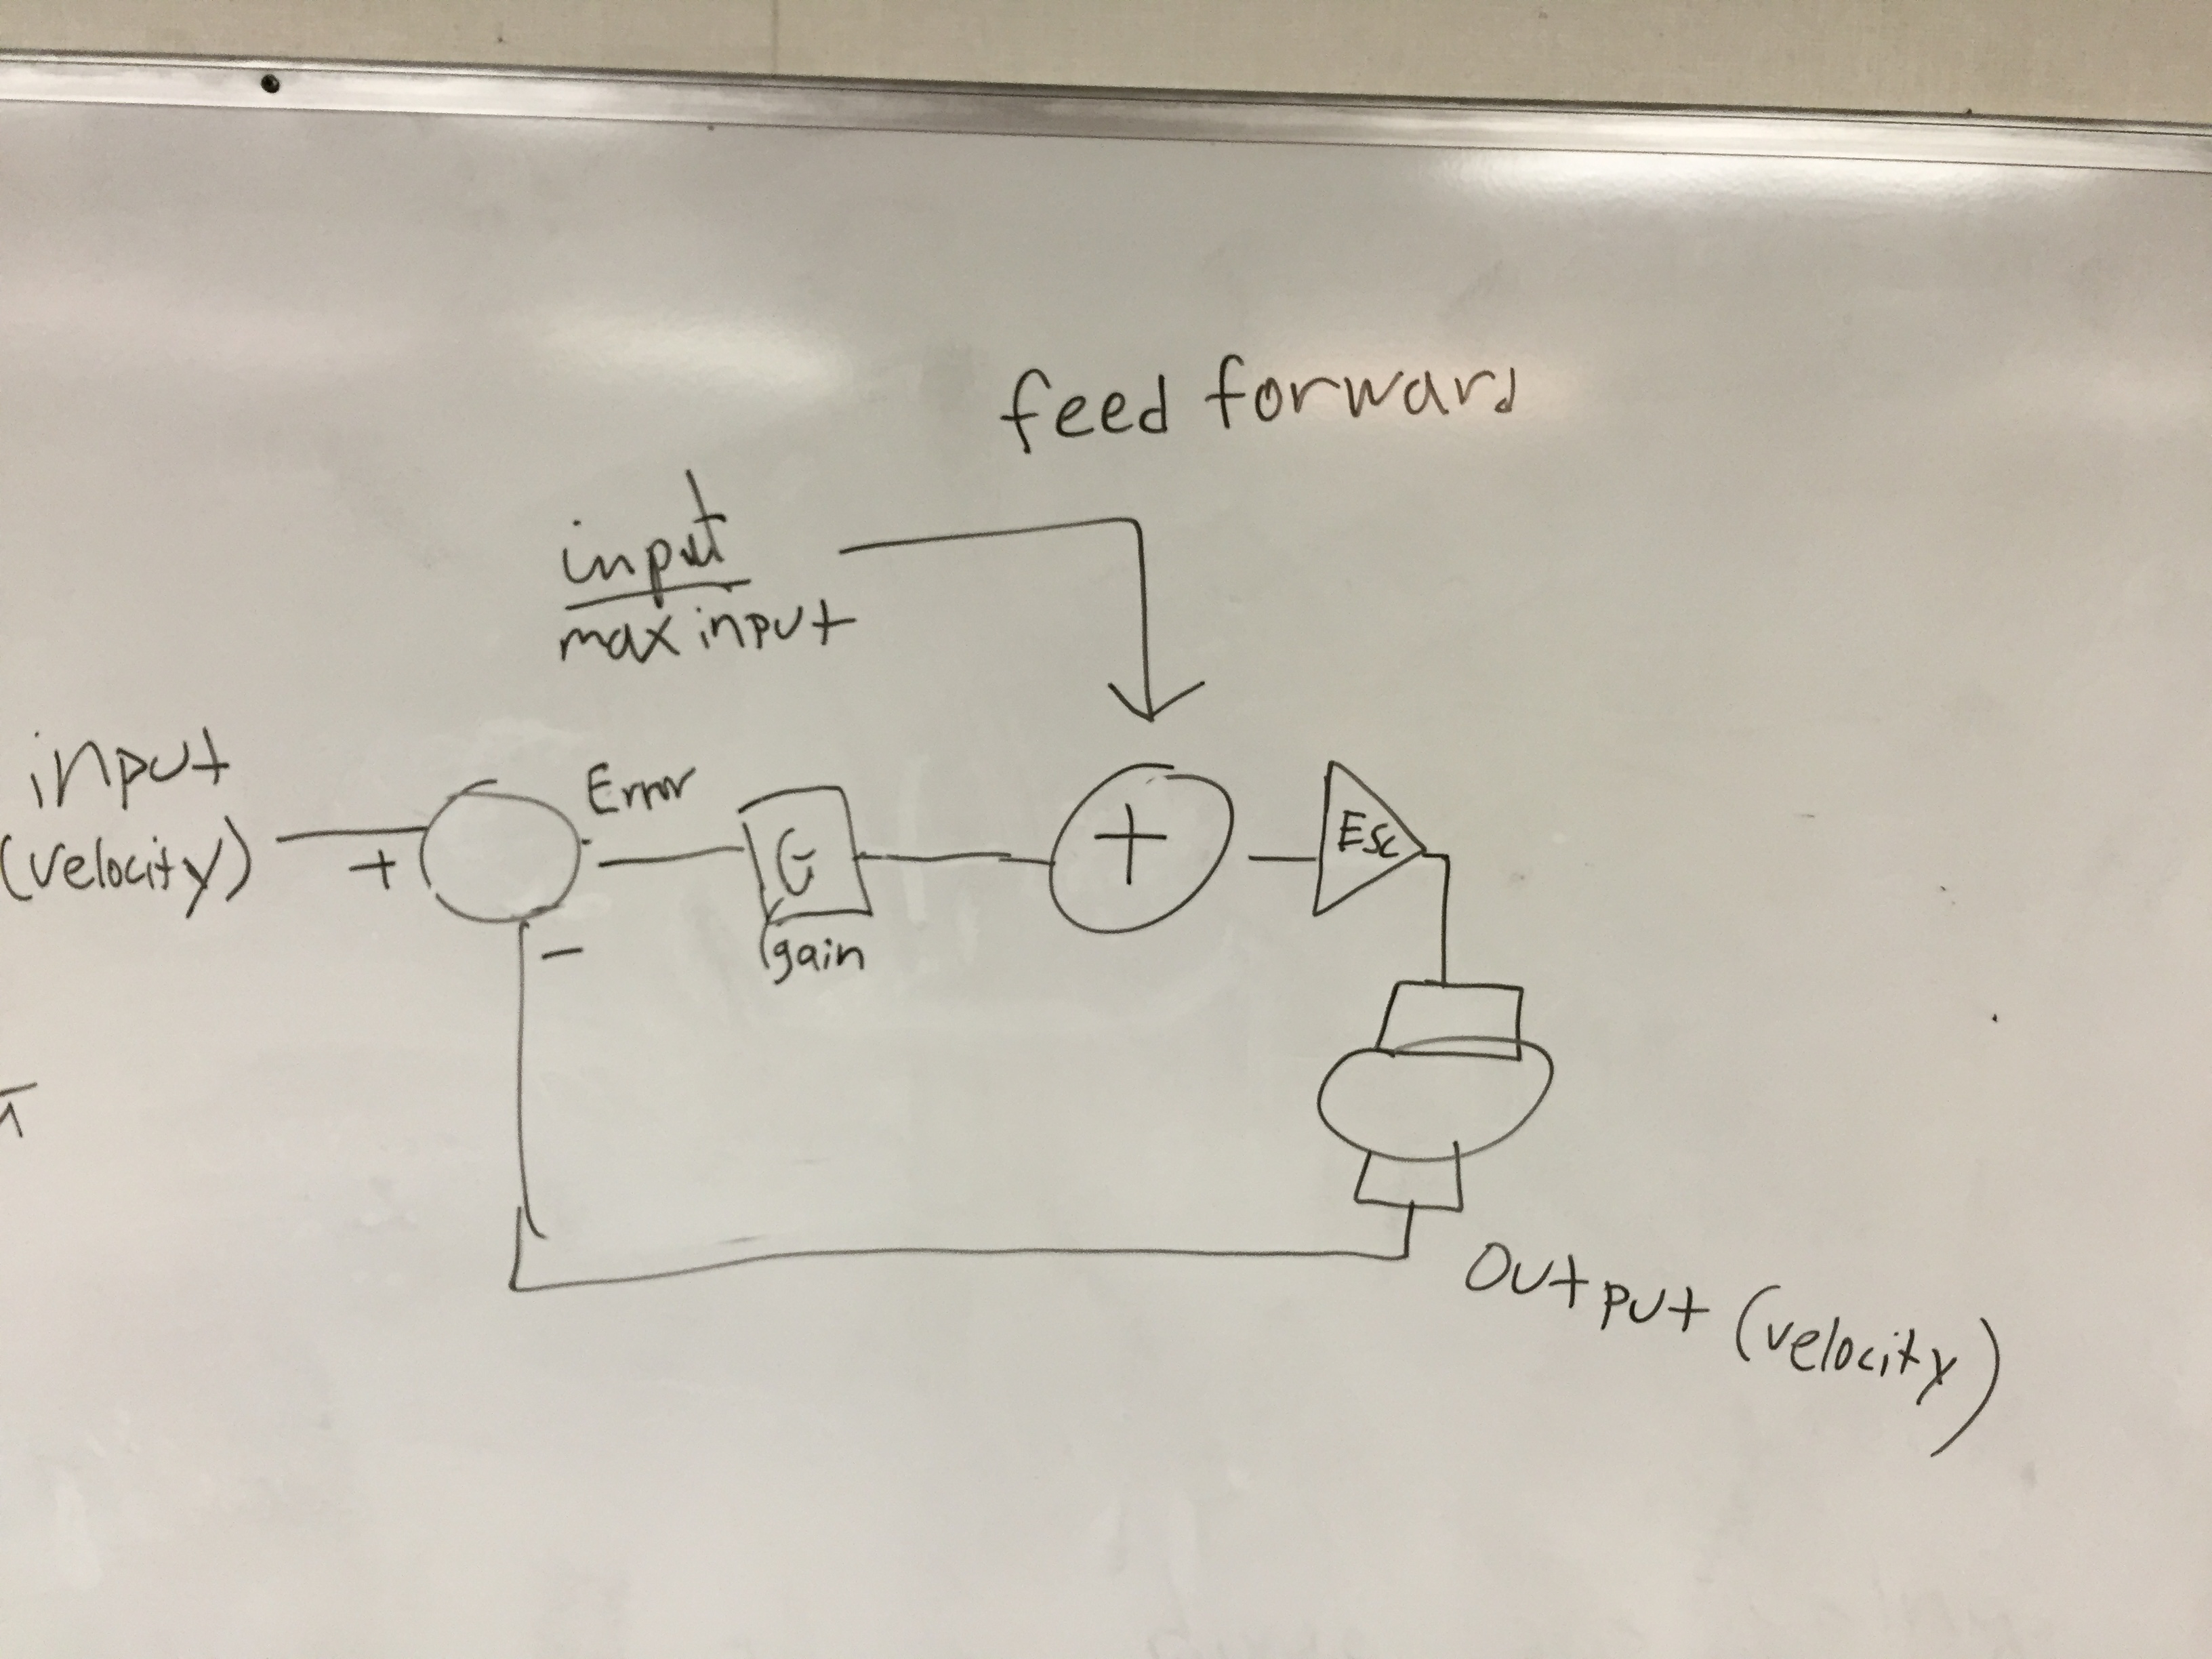 feed forward
input
max input
input
(velocity)
+
-
Error
G
gain
+
ESC
Output (velocity)